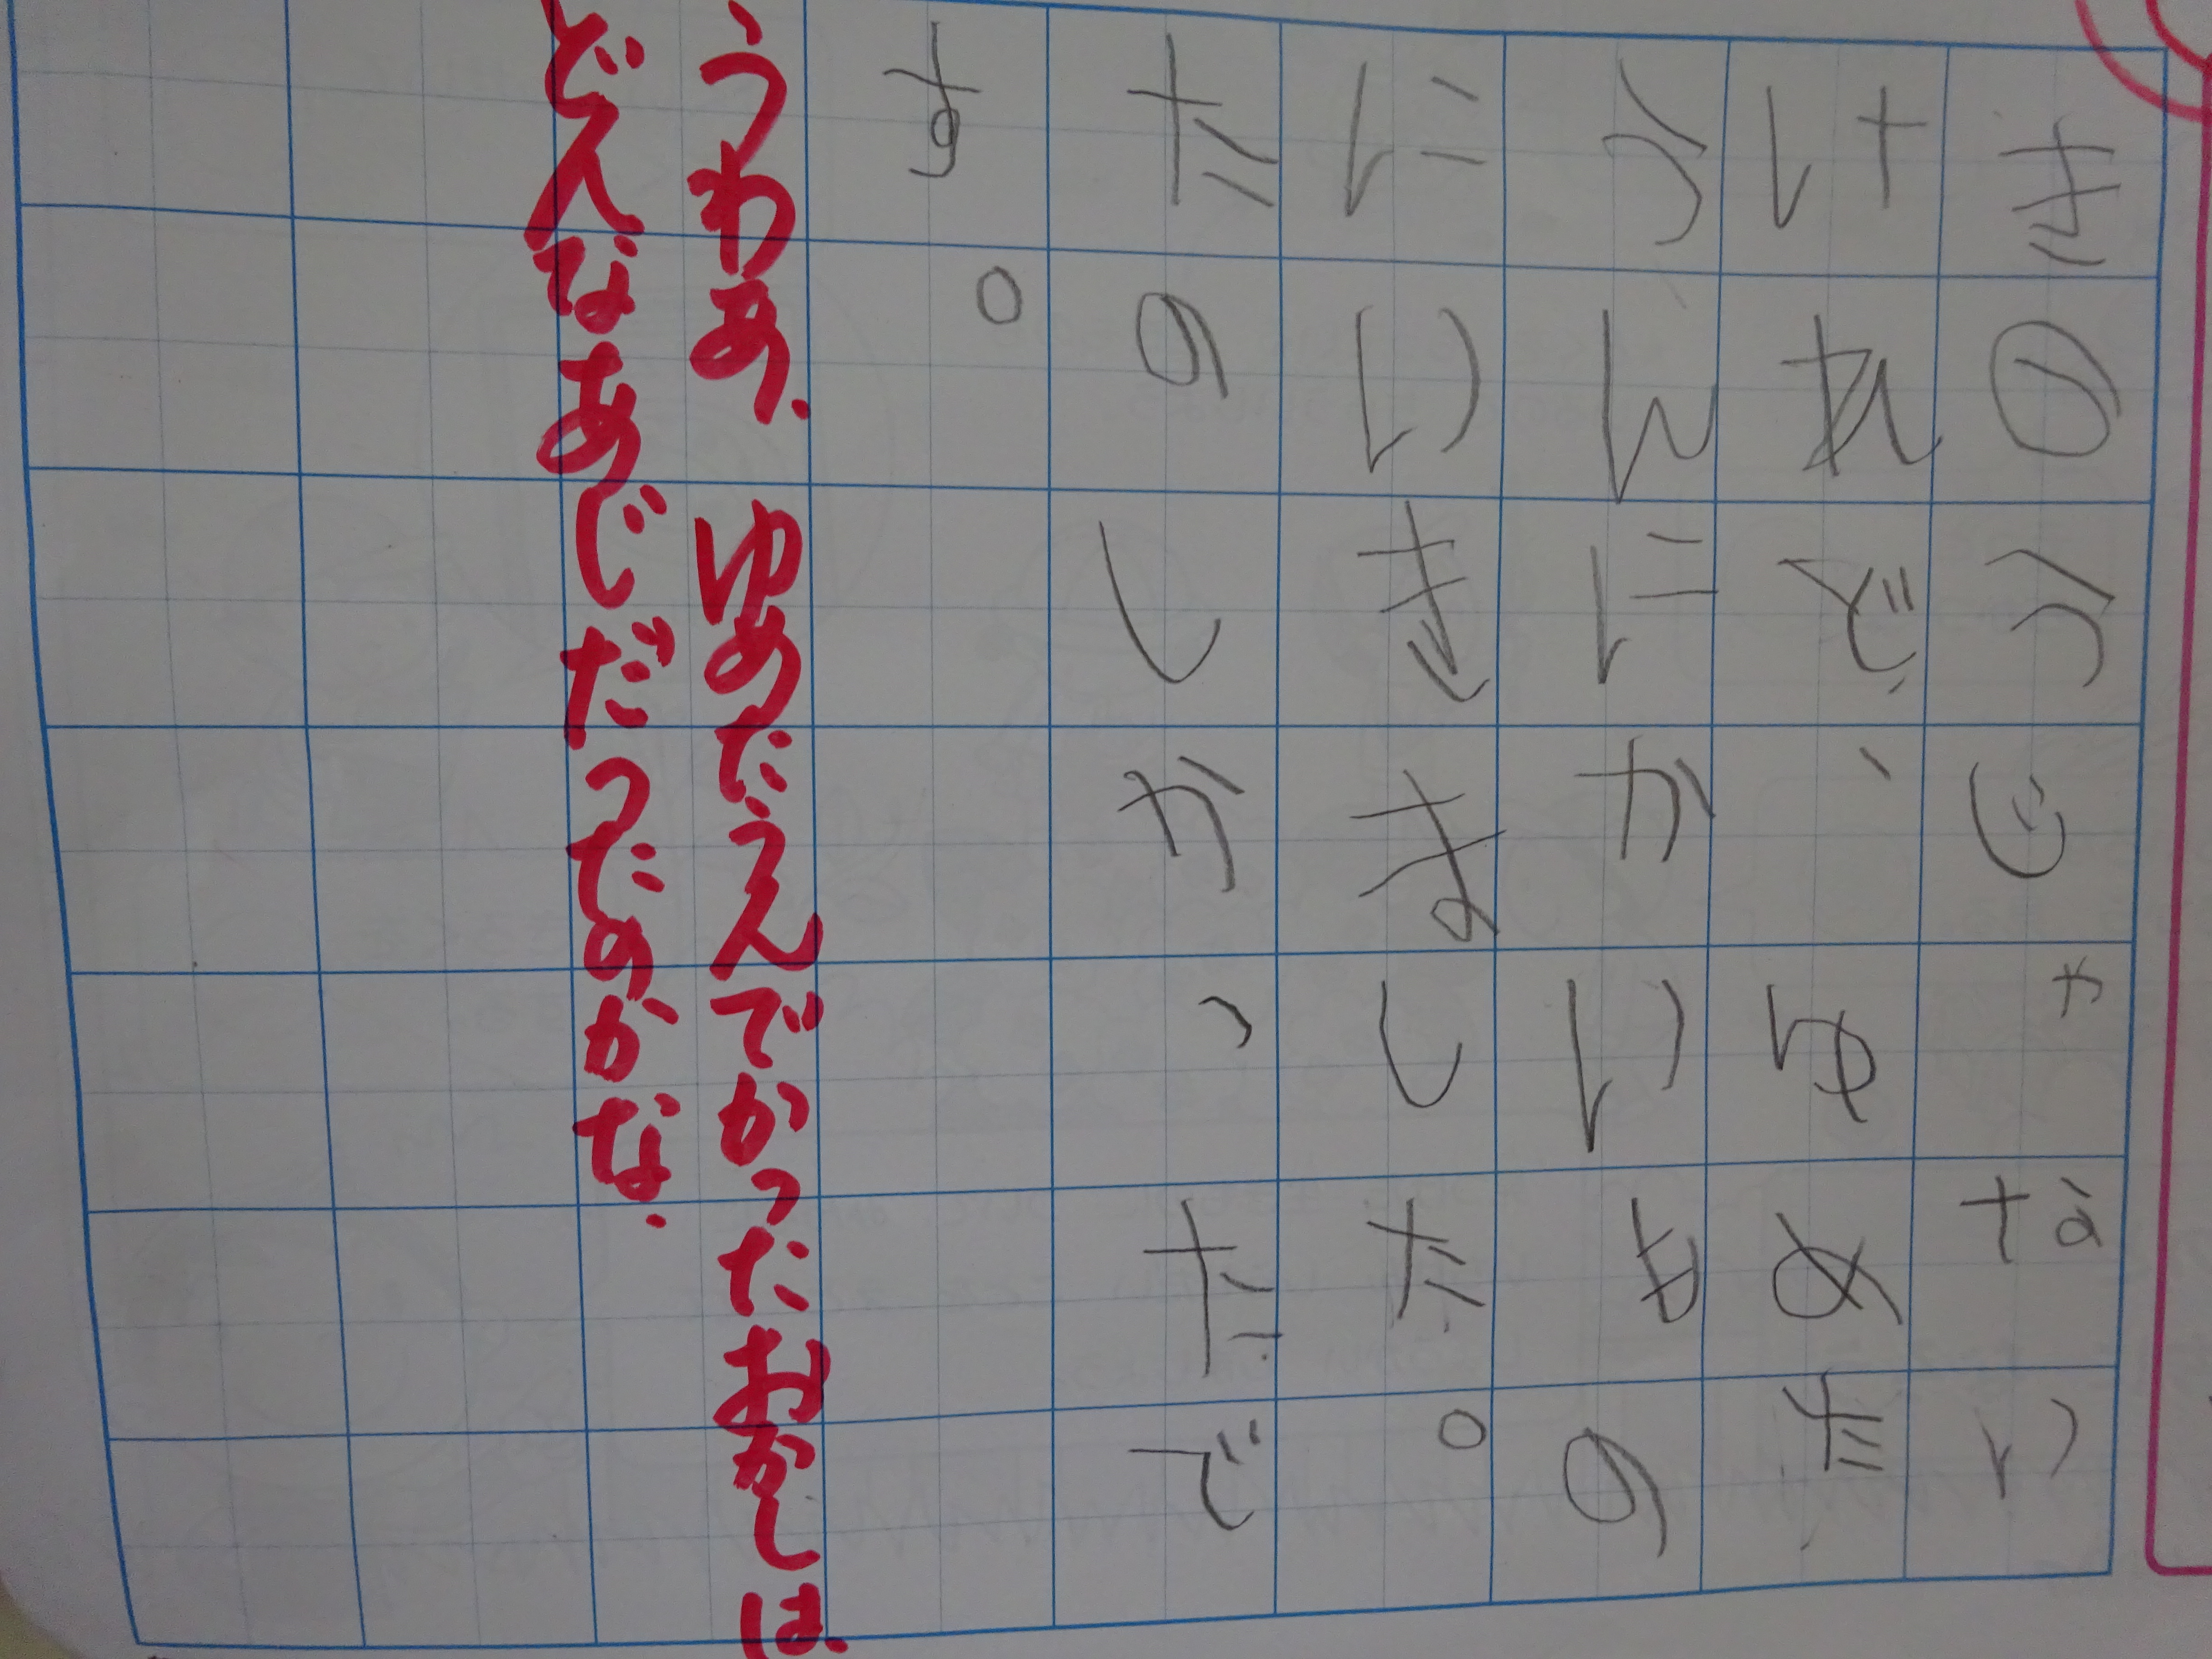 きのうじゃない
けれど、ゆめた
うんにかいもの
にいきました。
たのしかったで
す。
うわあ、ゆめたうんでかったおかしは、
どんなあじだったのかな.